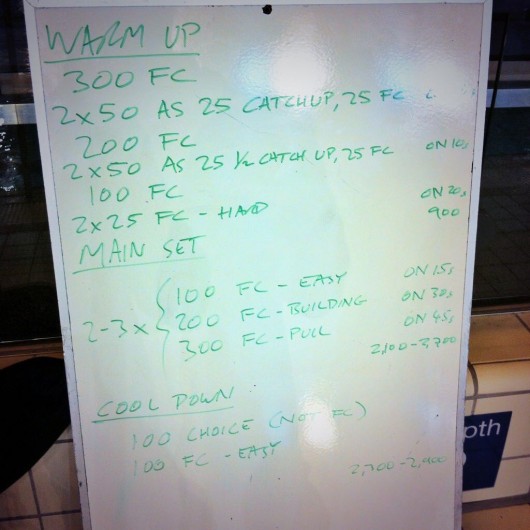 WARM UP
300 FC
2x50 AS 25 CATCHUP, 25 FC
200 FC
2x50 AS 25 1/2 CATCH UP, 25 FC ON 10s
100 FC
2x25 FC - HARD ON 20s
900
MAIN SET
2-3x { 100 FC - EASY ON 15s
200 FC - BUILDING ON 30s
300 FC - PULL ON 45s
2,100-2,700
COOL DOWN
100 CHOICE (NOT FC)
100 FC - EASY
2,300-2,900
pth